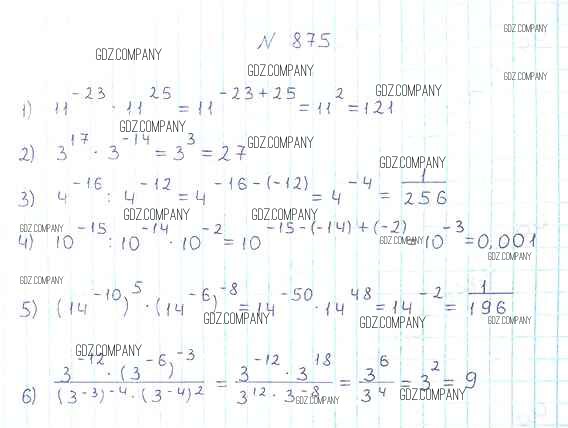 N 875
GDZ.COMPANY
GDZ.COMPANY
GDZ.COMPANY
GDZ.COMPANY
GDZ.COMPANY
1) 11^-23 · 11^25 = 11^-23+25 = 11^2 = 121
GDZ.COMPANY
GDZ.COMPANY
2) 3^17 · 3^-14 = 3^3 = 27
GDZ.COMPANY
3) 4^-16 : 4^-12 = 4^-16-(-12) = 4^-4 = 1/256
GDZ.COMPANY GDZ.COMPANY
GDZ.COMPANY
4) 10^-15 : 10^-14 · 10^-2 = 10^-15-(-14)+(-2) = 10^-3 = 0,001
GDZ.COMPANY
GDZ.COMPANY
GDZ.COMPANY
5) (14^-10)^5 · (14^-6)^-8 = 14^-50 · 14^48 = 14^-2 = 1/196
GDZ.COMPANY GDZ.COMPANY GDZ.COMPANY
GDZ.COMPANY
6) 3^-12 · (3^-6)^-3 / (3^-3)^-4 · (3^-4)^2 = 3^-12 · 3^18 / 3^12 · 3^-8 = 3^6 / 3^4 = 3^2 = 9
GDZ.COMPANY GDZ.COMPANY